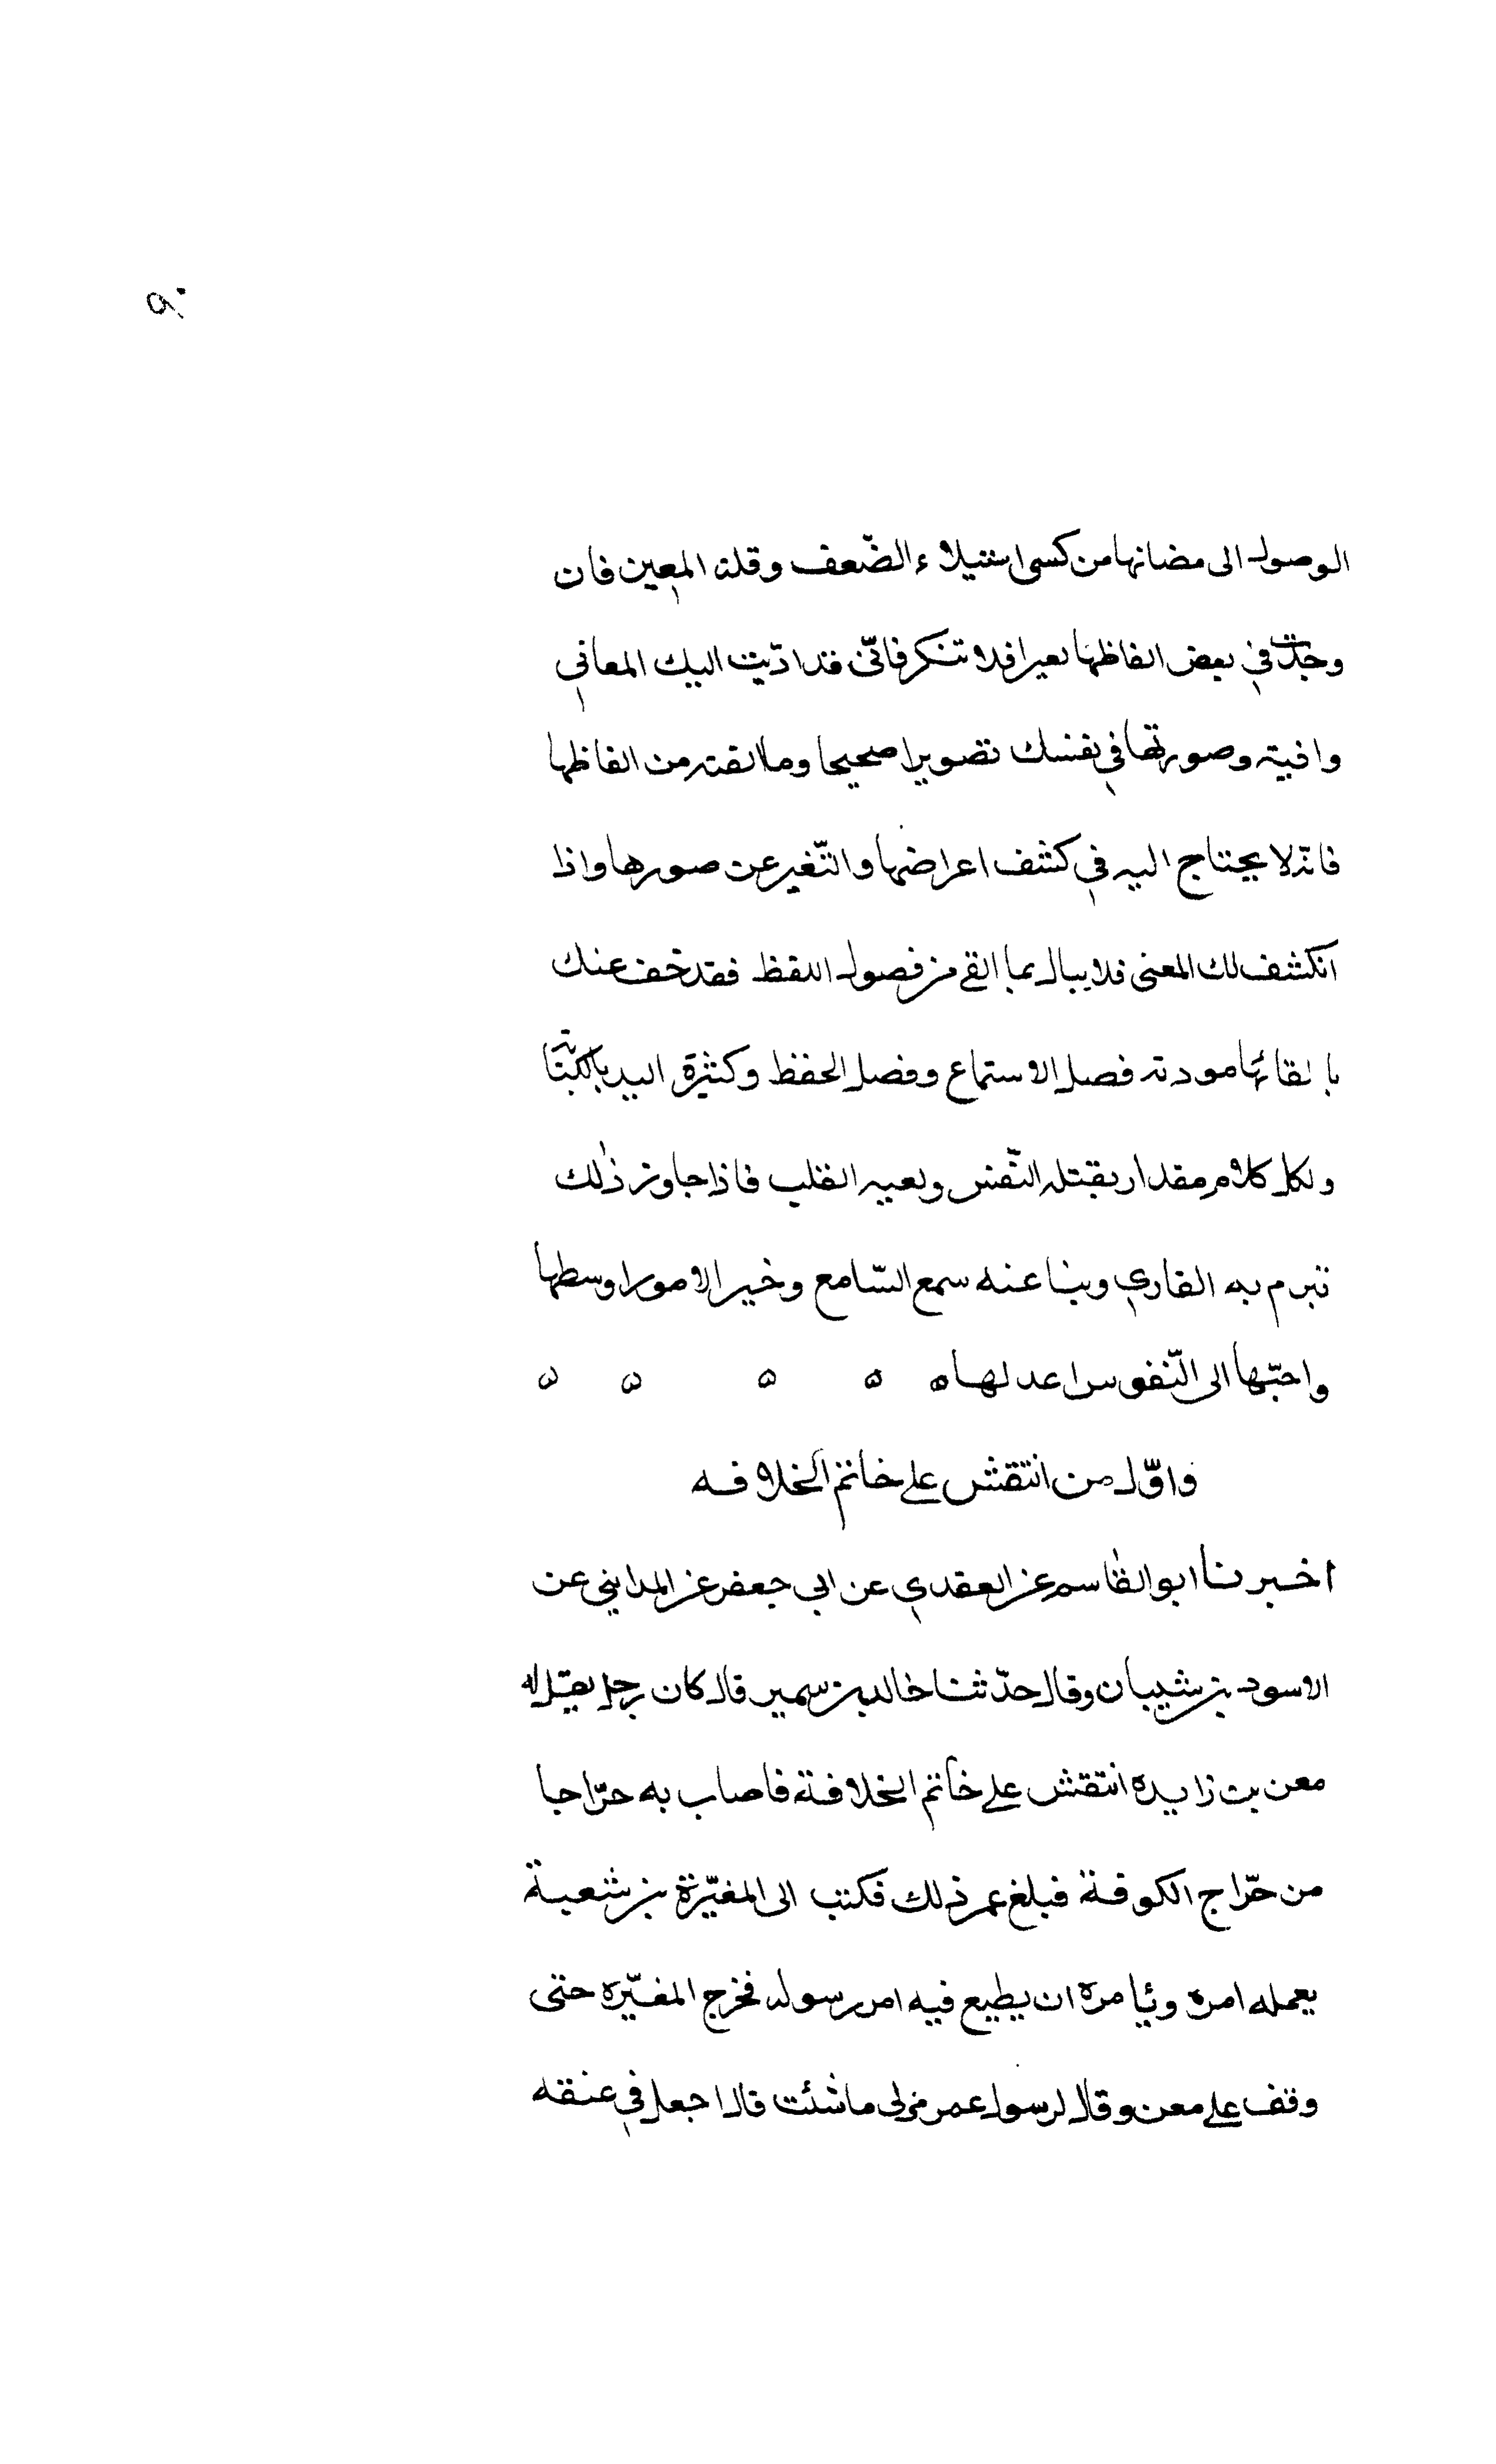 ٩٠
الوصول الى مضانها من كسى استيلاء الضّعف وقلة المعين فان
وجدت في بعض الفاظها تغيرا فلا تنكر فانّى قد ادّيت اليك المعاني
وافية وصورتها في نفسك تصويرا صحيحا وما القته من الفاظها
فانه لا يحتاج اليه في كشف اعراضها والتّغير عن صورها واذا
انكشف لك المعنى فلا يبال بما القي من فصول اللفظ فقد خف عنك
بالقائها مودته فصل الاستماع وفصل الحفظ وكثرة اليد بالكتا
ولكل كلام مقدار يقبله النّفس ولعيه القلب فاذا جاوز ذلك
تبرم به القاري وبنا عنه سمع السّامع وخير الامور اوسطها
واحبّها الى النّفوس اعدلها ه ه ه ه ه
واوّل من انتقش على خاتم الخلافه
اخبرنا ابو القاسم عن العقدي عن ابي جعفر عن المدايني عن
الاسود بن شيبان وقال حدّثنا خالد بن سمير قال كان رجل يقل له
معن بن زايده انتقش على خاتم الخلافة فاصاب به حرّاجا
من حرّاج الكوفة فبلغ عمر ذلك فكتب الى المغيّرة بن شعبة
يعمله امره ويامره ان يطيع فيه امر رسوله فخرج المغيّره حتى
وقف على معن وقال لرسول عمر مرلى ما شئت قال اجعل في عنقه